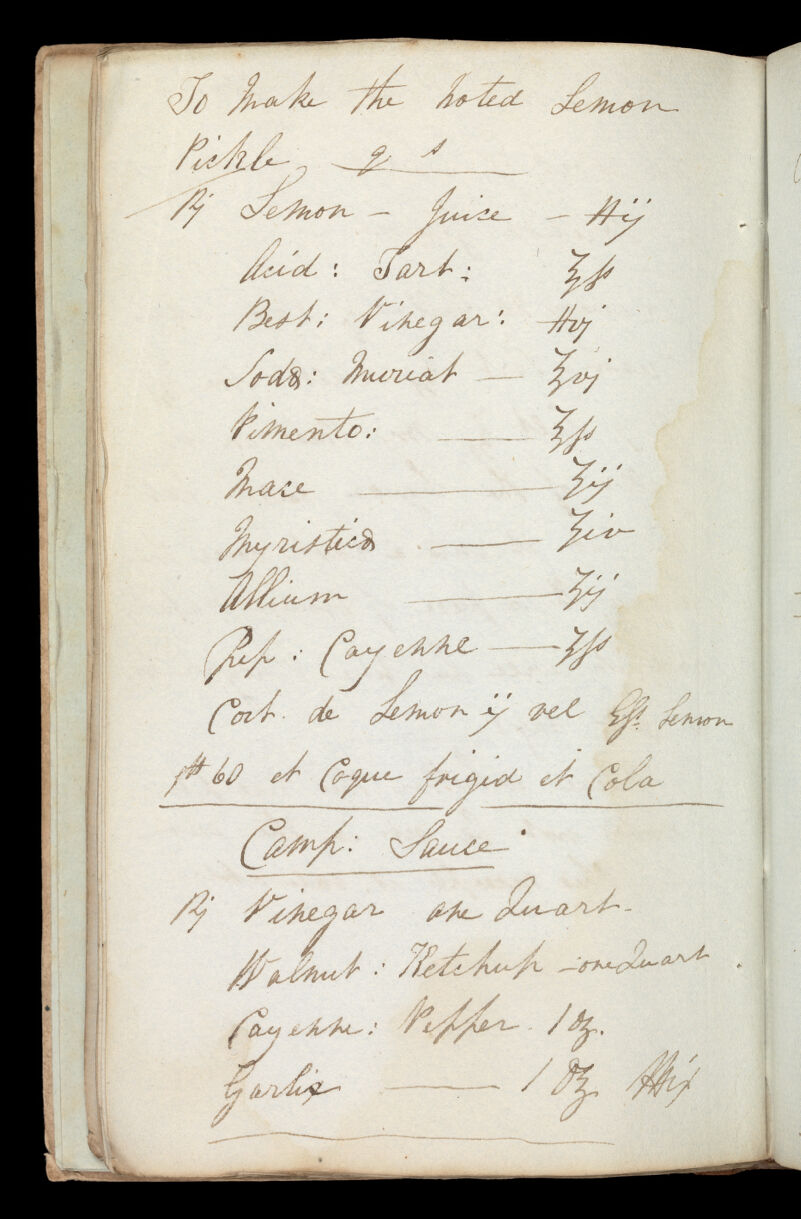 To Make the noted Lemon
Pickle q s
℞ Lemon - Juice - ℔ij
Acid: Tart: ℥ß
Best: Vinegar: ℔vj
Sodæ: Muriat — ℥vj
Pimento: — ℥ß
Mace — ℥ij
Myristicæ — ℥iv
Allium — ℥ij
Pep: Cayenne — ℥ß
Cort. de Lemon ij vel Ess. Lemon
60 et Coque frigid et Cola
Camp: Sauce
℞ Vinegar one Quart-
Walnut: Ketchup - one Quart
Cayenne: Pepper. 1 oz.
Garlix — 1 Oz Mix